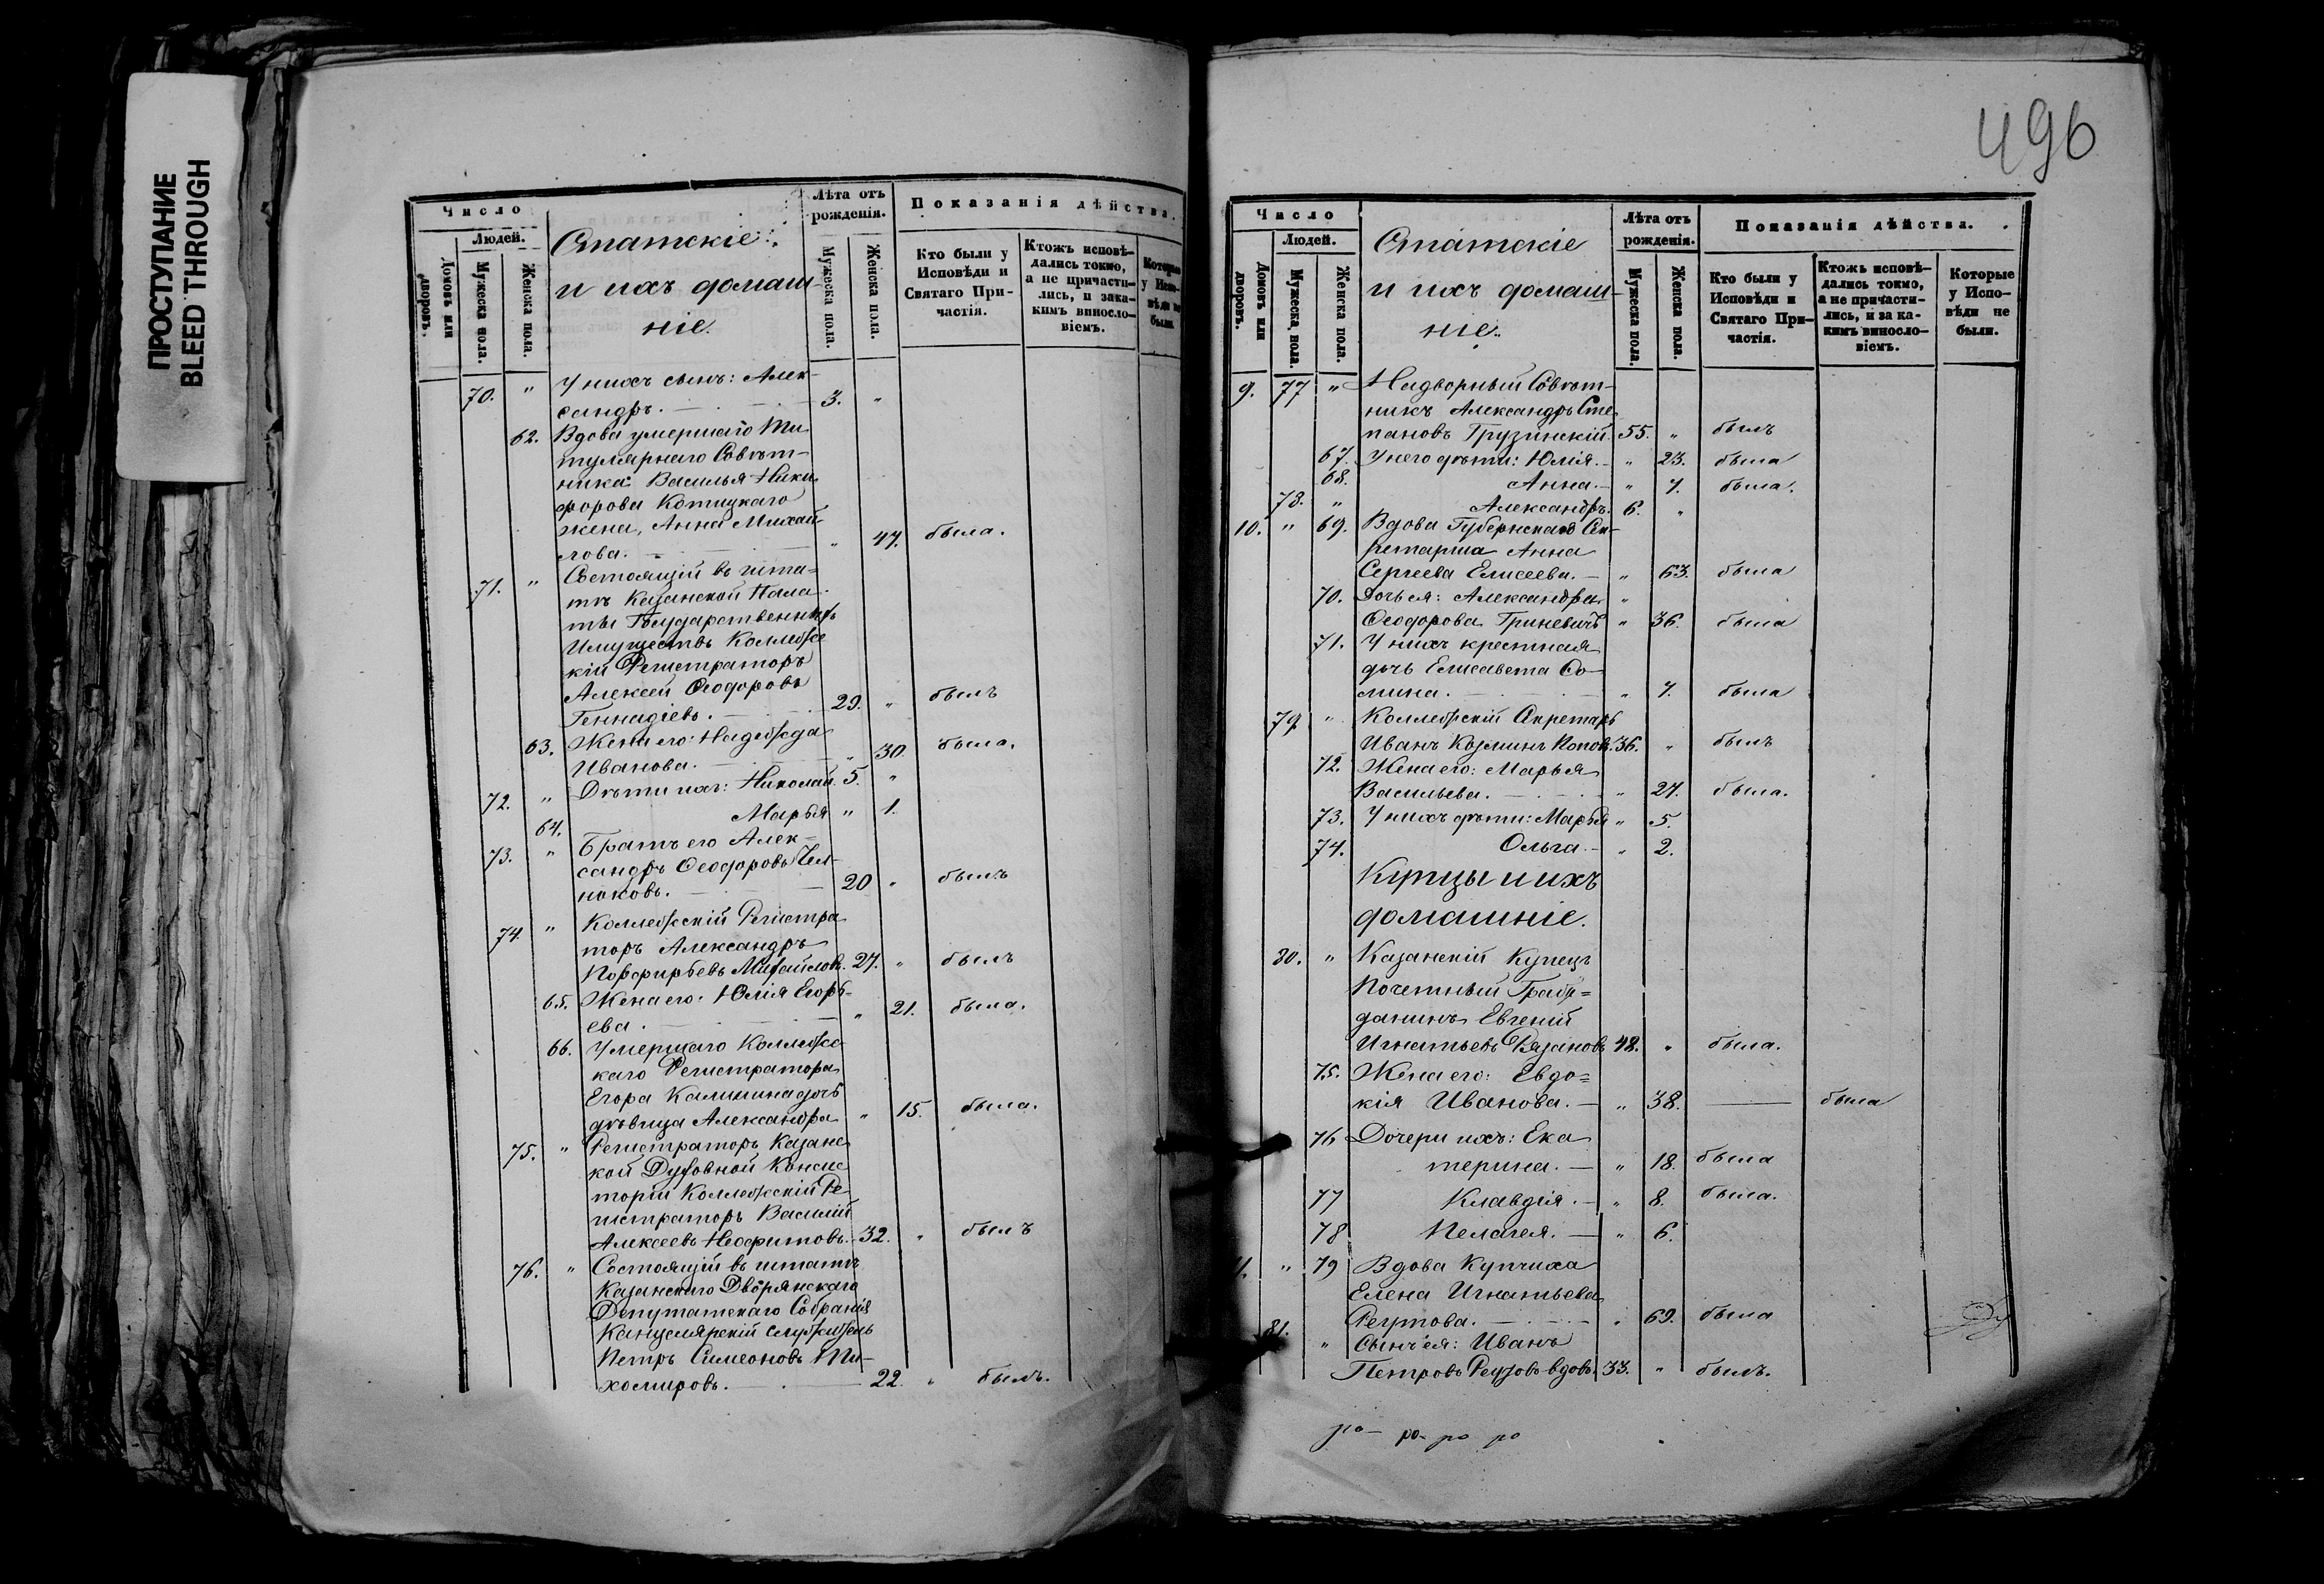 ПРОСТУПАНИЕ
BLEED THROUGH
Число
Людей.
Домовъ или дворовъ.
Мужеска пола.
Женска пола.
Статскіе
и ихъ домаш-
ніе.
Лѣта отъ рожденія.
Мужеска пола.
Женска пола.
Показанія дѣйства.
Кто были у Исповѣди и Святаго При-частія.
Ктожъ исповѣ-дались токмо, а не причасти-лись, и за ка-кимъ виносло-віемъ.
Которые у Испо-вѣди не были.
70. " У нихъ сынъ: Алек-
сандръ. 3. "
62. Вдова умершаго Ти-
тулярнаго Совѣт-
ника Василья Ники-
форова Котицкаго
жена, Анна Михай-
лова. " 47. была.
71. " Состоящій въ шта-
тѣ Казанской Пала-
ты Государственныхъ
Имуществъ Коллежс-
кій Регистраторъ
Алексей Ѳеодоровъ
Геннадіевъ. 29. " былъ
63. Жена его: Надежда
Иванова. " 30 была.
72. " Дѣти ихъ: Николай. 5. "
64. Марья " 1.
73. " Братъ его Алек-
сандръ Ѳеодоровъ
20 " былъ
74. " Коллежскій Регистра
торъ Александръ
Порфирьевъ Михайловъ. 27. " былъ
65. Жена его: Юлія Егорь-
ева. " 21. была.
66. Умершаго Коллежс-
каго Регистратора
Егора Калинина дочь
дѣвица Александра " 15. была.
75. " Регистраторъ Казанс
кой Духовной Консис
торіи Коллежскій Ре-
гистраторъ Василій
Алексеевъ Неофитовъ. 32. " былъ
76. " Состоящій въ штатѣ
Казанского Дворянскаго
Депутатскаго Собранія
Канцелярскій служитель
Петръ Симеоновъ Ти-
хомировъ. 22. " былъ.
496
Число
Людей.
Домовъ или дворовъ.
Мужеска пола.
Женска пола.
Статскіе
и ихъ домаш-
ніе.
Лѣта отъ рожденія.
Мужеска пола.
Женска пола.
Показанія дѣйства.
Кто были у Исповѣди и Святаго При-частія.
Ктожъ исповѣ-дались токмо, а не причасти-лись, и за ка-кимъ виносло-віемъ.
Которые у Испо-вѣди не были.
9. 77 " Надворный Совѣт-
никъ Александръ Сте-
пановъ Грузинскій. 55. " былъ
67. У него дѣти: Юлія. " 23. была
68. Анна. " 7. была.
78. " Александръ. 6. "
10. " 69. Вдова Губернская Се-
кретарша Анна
Сергеева Елисеева. " 63. была
70. Дочь ея: Александра "
Ѳеодорова Гриневичъ " 36. была
71. У нихъ крестная
дочь Елисавета Ѳо-
мина. " 7. была
79. " Коллежскій Секретарь
Иванъ Козминъ Поповъ. 36. " былъ
72. Жена его: Марья
Васильева. " 27. была.
73. У нихъ дѣти: Марья " 5.
74. Ольга. " 2.
Купцы и ихъ
домашніе.
80. " Казанскій Купецъ
Почетный Граж-
данинъ Евгеній
Игнатьевъ Рязановъ 48. " была.
75. Жена его: Евдо-
кія Иванова. " 38. была
76 Дочери ихъ: Ека
терина. " 18. была
77 Клавдія. " 8. была.
78 Пелагея. " 6.
11. " 79 Вдова Купчиха
Елена Игнатьева
Реутова. " 69. была
81. " Сынъ ея: Иванъ
Петровъ Реутовъ вдовъ. 33. " былъ.